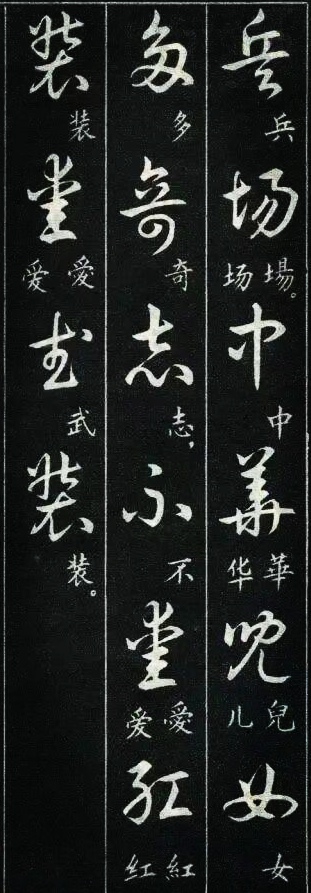 兵場中華兒女
兵
場。场
中
華华
兒儿
女
多奇志不愛紅
多
奇
志，
不
愛爱
紅红
装愛武装
装
愛爱
武
装。